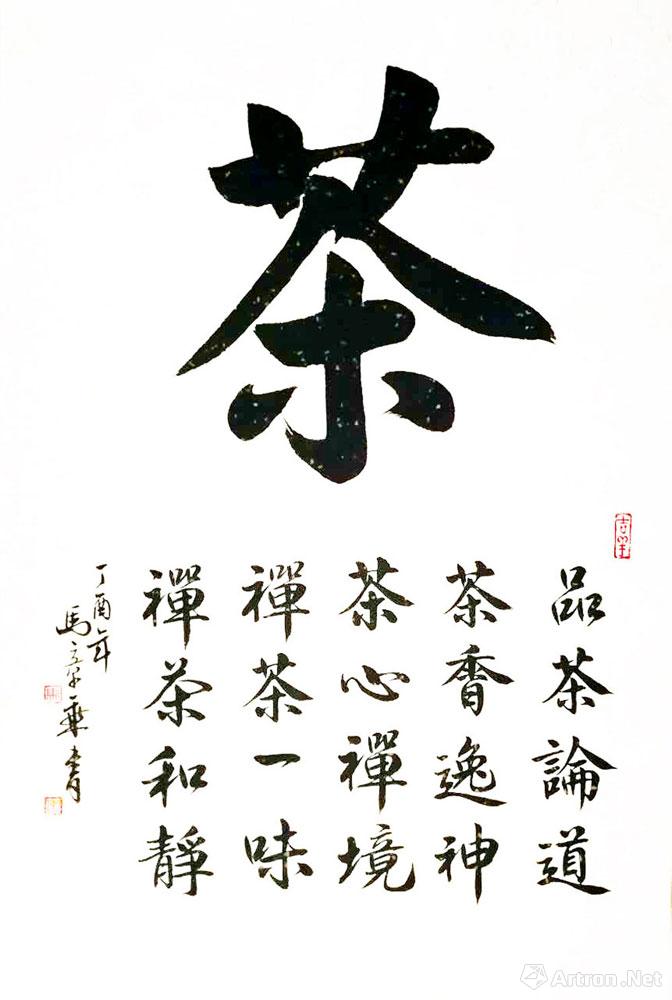 茶
品茶論道
茶香逸神
茶心禪境
禪茶一味
禪茶和靜
丁酉年
馬
Artron.Net